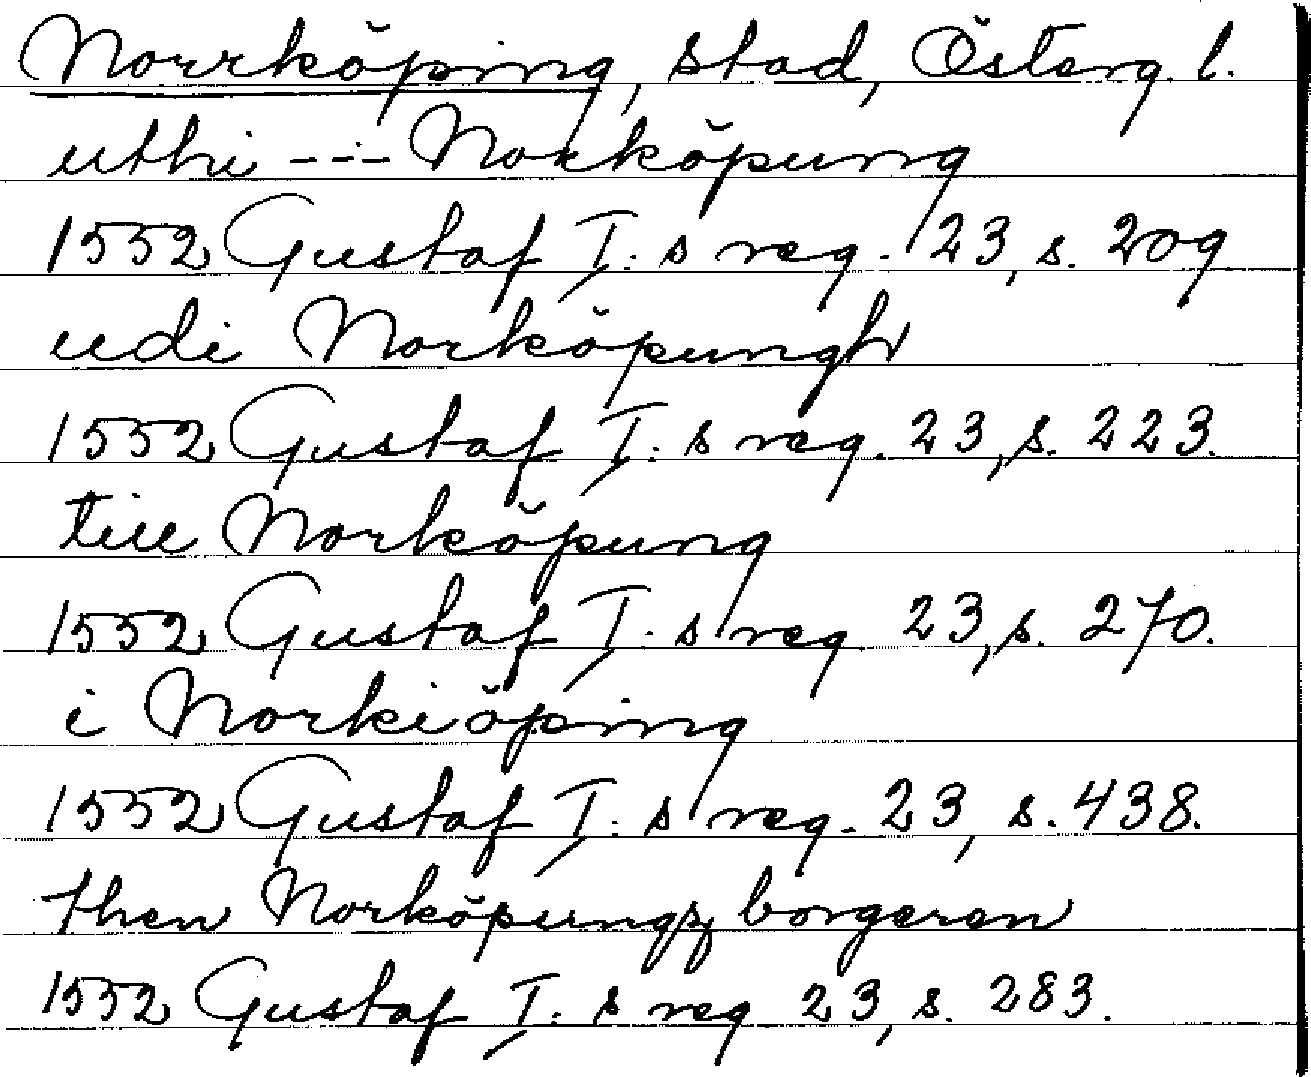 Norrköping, stad, Österg. l.
uthi --- Norköpung
1552 Gustaf I: s reg. 23, s. 209
udi Norköpungh
1552 Gustaf I: s reg. 23, s. 223.
till Norköpung
1552 Gustaf I: s reg. 23, s. 270.
i Norkiöping
1552 Gustaf I: s reg. 23, s. 438.
then Norköpungz borgeren
1552 Gustaf I: s reg 23, s. 283.